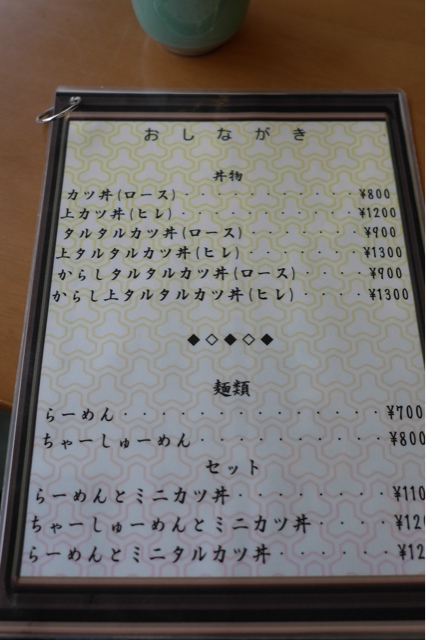 おしながき
丼物
カツ丼(ロース)・・・・・・・・・・・¥800
上カツ丼(ヒレ)・・・・・・・・・・・¥1200
タルタルカツ丼(ロース)・・・・・・・¥900
上タルタルカツ丼(ヒレ)・・・・・・・¥1300
からしタルタルカツ丼(ロース)・・・・¥900
からし上タルタルカツ丼(ヒレ)・・・・¥1300
◆◇◆◇◆
麺類
らーめん・・・・・・・・・・・・・・¥700
ちゃーしゅーめん・・・・・・・・・・¥800
セット
らーめんとミニカツ丼・・・・・・・・¥110
ちゃーしゅーめんとミニカツ丼・・・・¥120
らーめんとミニタルカツ丼・・・・・・¥12